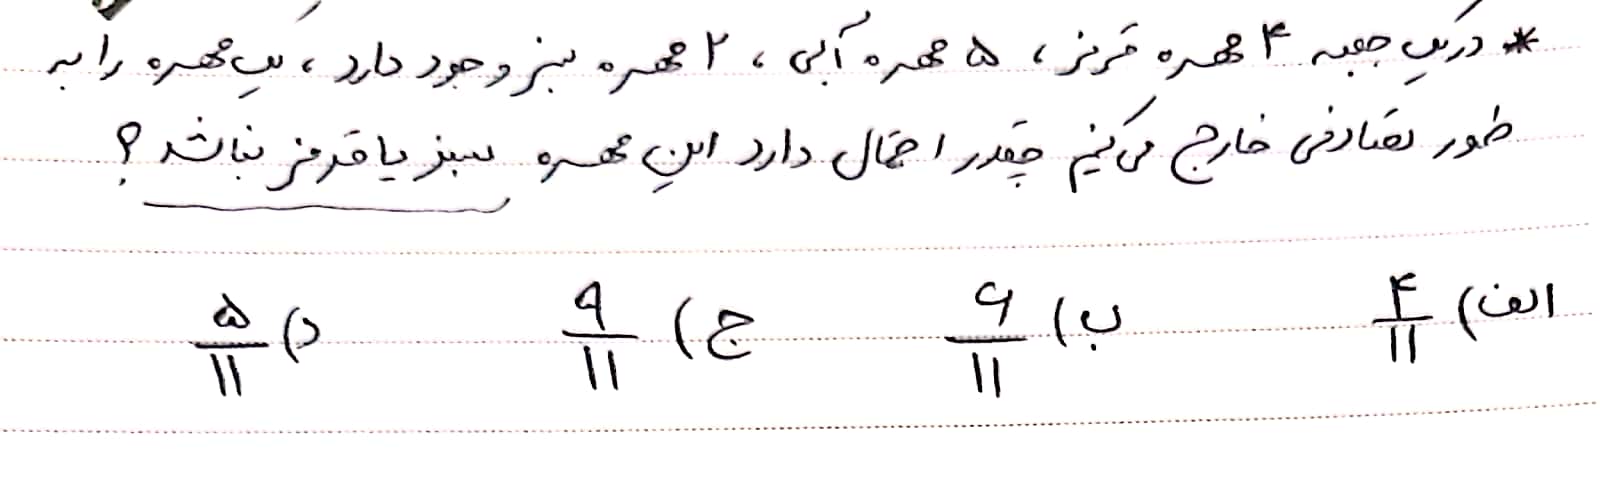 * در یک جعبه ۴ مهره قرمز، ۵ مهره آبی، ۲ مهره سبز وجود دارد، یک مهره را به
طور تصادفی خارج می‌کنیم چقدر احتمال دارد این مهره سبز یا قرمز نباشد؟
الف) ۴/۱۱ ب) ۶/۱۱ ج) ۹/۱۱ د) ۵/۱۱